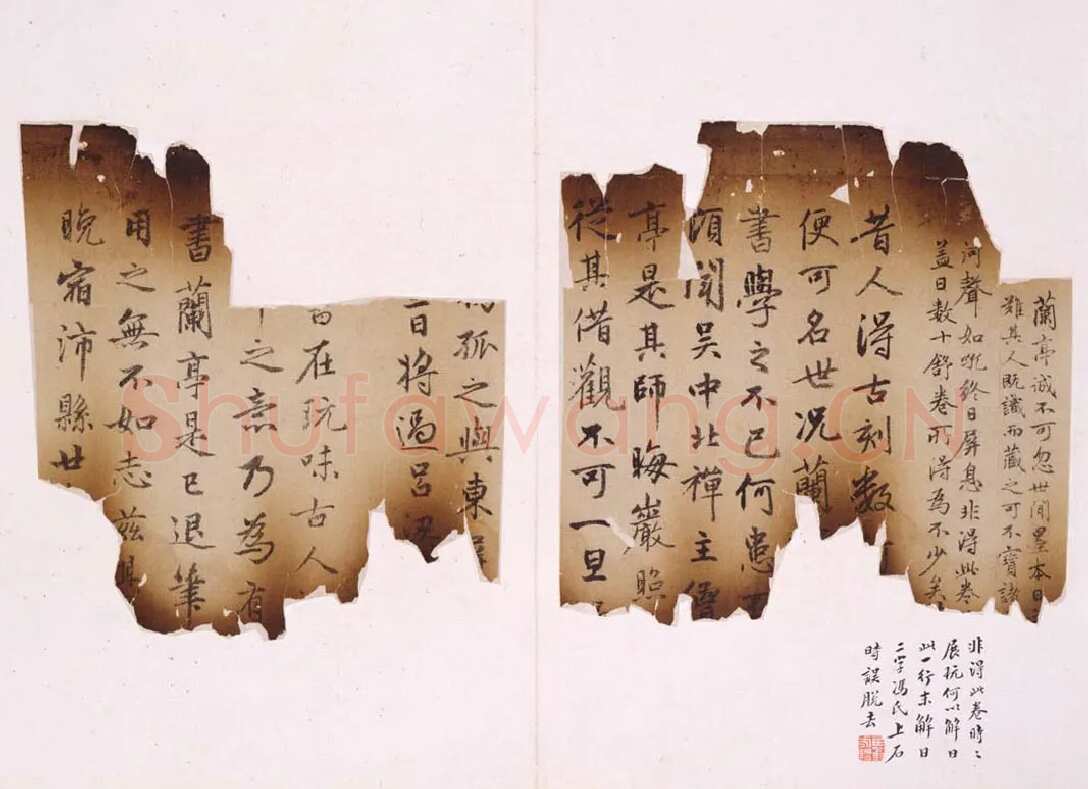 蘭亭誠不可忽世間墨本日
難其人既識而藏之可不寶諸
河聲如吼終日屏息非得此卷
益日數十舒卷所得為不少矣
昔人得古刻數
便可名世況蘭
書學之不已何患
頃聞吳中北禪主僧
亭是其師晦巖照
從其借觀不可一旦
非得此卷時〻
展玩何以解日
此一行末解日
二字馮氏上石
時誤脫去
孤之與東
日將過呂
在玩味古人
之意乃為有
書蘭亭是已退筆
用之無不如志茲
晚宿沛縣世
Shufawang.CN